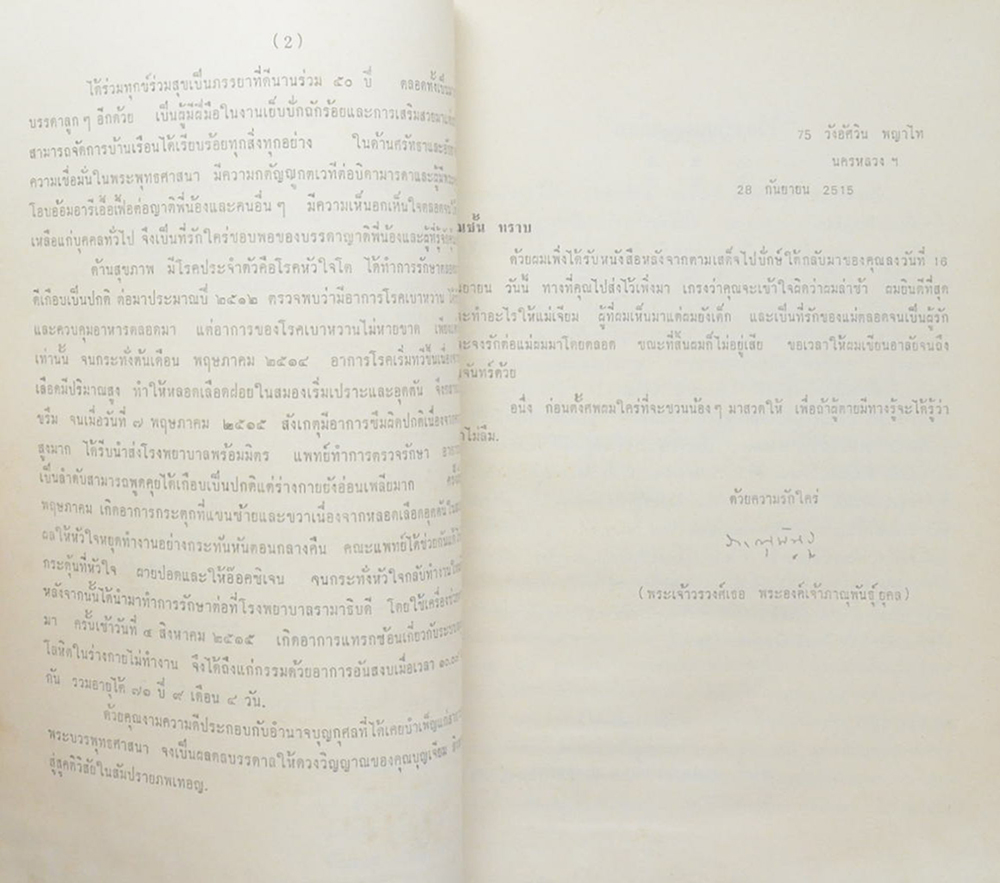 (2)
ได้ร่วมทุกข์ร่วมสุขเป็นภรรยาที่ดีนานร่วม ๕๐ ปี ตลอดทั้งเป็น
บรรดาลูกๆ อีกด้วย เป็นผู้มีฝีมือในงานเย็บปักถักร้อยและการเสริมสวย
สามารถจัดการบ้านเรือนได้เรียบร้อยทุกสิ่งทุกอย่าง ในด้านศรัทธาและ
ความเชื่อมั่นในพระพุทธศาสนา มีความกตัญญูกตเวทีต่อบิดามารดาและ
โอบอ้อมอารีเอื้อเฟื้อต่อญาติพี่น้องและคนอื่นๆ มีความเห็นอกเห็นใจตลอดจน
เหลือแก่บุคคลทั่วไป จึงเป็นที่รักใคร่ชอบพอของบรรดาญาติพี่น้องและผู้ที่รู้จัก
ด้านสุขภาพ มีโรคประจำตัวคือโรคหัวใจโต ได้ทำการรักษา
ดีเกือบเป็นปกติ ต่อมาประมาณปี ๒๕๑๒ ตรวจพบว่ามีอาการโรคเบาหวาน
และควบคุมอาหารตลอดมา แต่อาการของโรคเบาหวานไม่หายขาด
เท่านั้น จนกระทั่งต้นเดือน พฤษภาคม ๒๕๑๔ อาการโรคเริ่มทวีขึ้น
เลือดมีปริมาณสูง ทำให้หลอดเลือดฝอยในสมองเริ่มเปราะและอุดตัน
ขรึม จนเมื่อวันที่ ๗ พฤษภาคม ๒๕๑๕ สังเกตุมีอาการซึมผิดปกติเนื่องจาก
สูงมาก ได้รีบนำส่งโรงพยาบาลพร้อมมิตร แพทย์ทำการตรวจรักษา
เป็นลำดับสามารถพูดคุยได้เกือบเป็นปกติแต่ร่างกายยังอ่อนเพลียมาก
พฤษภาคม เกิดอาการกระตุกที่แขนซ้ายและขวาเนื่องจากหลอดเลือดอุดตัน
ผลให้หัวใจหยุดทำงานอย่างกระทันหันตอนกลางคืน คณะแพทย์ได้ช่วยกัน
กระตุ้นที่หัวใจ ผายปอดและให้อ๊อคซิเจน จนกระทั่งหัวใจกลับทำงาน
หลังจากนั้นได้นำมาทำการรักษาต่อที่โรงพยาบาลรามาธิบดี โดยใช้เครื่อง
มา ครั้นเช้าวันที่ ๔ สิงหาคม ๒๕๑๕ เกิดอาการแทรกซ้อนเกี่ยวกับระบบ
โลหิตในร่างกายไม่ทำงาน จึงได้ถึงแก่กรรมด้วยอาการอันสงบเมื่อเวลา
กัน รวมอายุได้ ๗๑ ปี ๙ เดือน ๔ วัน.
ด้วยคุณงามความดีประกอบกับอำนาจบุญกุศลที่ได้เคยบำเพ็ญแก่
พระบวรพุทธศาสนา จงเป็นผลดลบรรดาลให้ดวงวิญญาณของคุณบุญเจียม
สู่สุคติวิสัยในสัมปรายภพเทอญ.
75 วังอัศวิน พญาไท
นครหลวง ฯ
28 กันยายน 2515
ทราบ
ด้วยผมเพิ่งได้รับหนังสือหลังจากตามเสด็จไปปักษ์ใต้กลับมาของคุณลงวันที่ 16
วันนี้ ทางที่คุณไปส่งไว้เพิ่งมา เกรงว่าคุณจะเข้าใจผิดว่าผมล่าช้า ผมยินดีที่สุด
จะทำอะไรให้แม่เจียม ผู้ที่ผมเห็นมาแต่ผมยังเด็ก และเป็นที่รักของแม่ตลอดจนเป็นผู้รัก
จงรักต่อแม่ผมมาโดยตลอด ขณะที่สิ้นผมก็ไม่อยู่เสีย ขอเวลาให้ผมเขียนอาลัยจนถึง
จันทร์ด้วย
อนึ่ง ก่อนตั้งศพผมใคร่ที่จะชวนน้องๆ มาสวดให้ เพื่อถ้าผู้ตายมีทางรู้จะได้รู้ว่า
ไม่ลืม.
ด้วยความรักใคร่
(พระเจ้าวรวงศ์เธอ พระองค์เจ้าภาณุพันธุ์ยุคล)